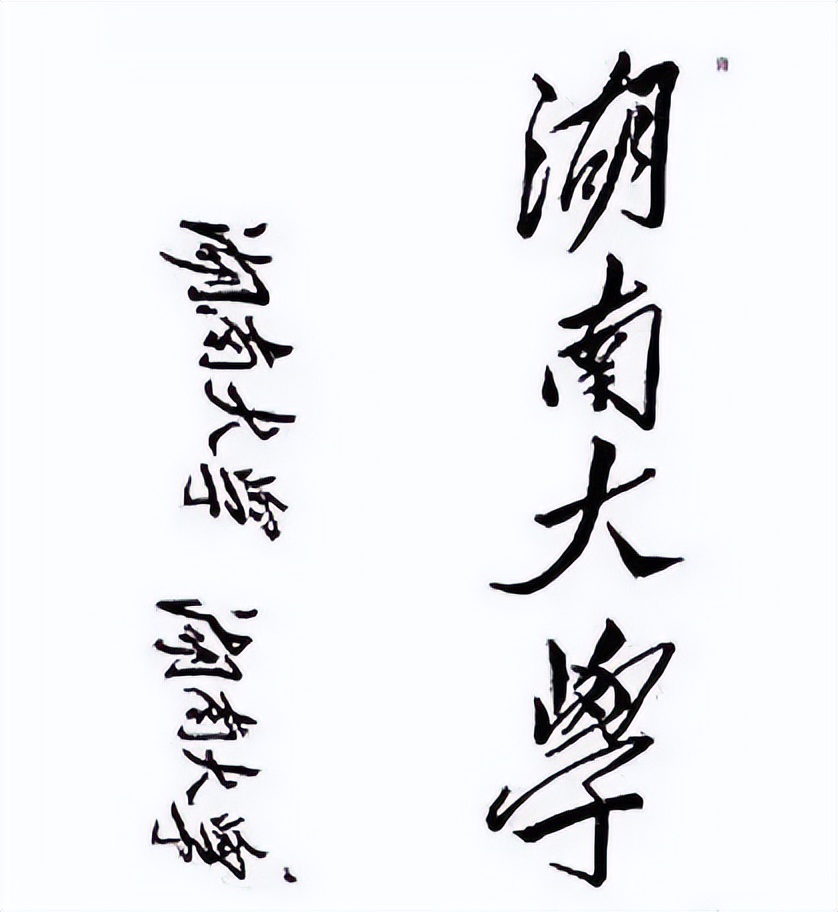 湖南大學
湖南大学
湖南大学